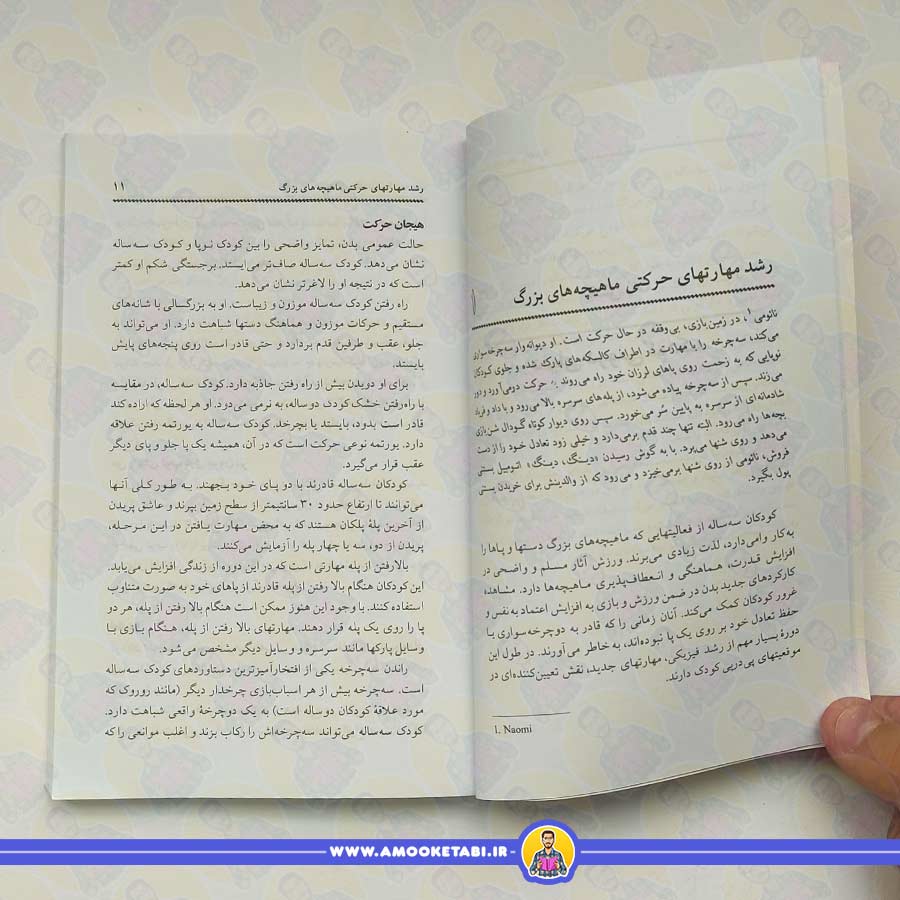 رشد مهارتهای حرکتی ماهیچه‌های بزرگ
۱
نائومی۱، در زمین بازی، بی‌وقفه در حال حرکت است. او دیوانه‌وار سه‌چرخه‌سواری
می‌کند، سه‌چرخه را با مهارت در اطراف کالسکه‌های پارک شده و جلوی کودکان
نوپایی که به زحمت روی پاهای لرزان خود راه می‌روند به حرکت درمی‌آورد و دور
می‌زند. سپس از سه‌چرخه پیاده می‌شود، از پله‌های سرسره بالا می‌رود و با داد و فریاد
شادمانه‌ای از سرسره به پایین سُر می‌خورد. سپس روی دیوار کوتاه گودال شن‌بازی
بچه‌ها راه می‌رود. البته تنها چند قدم برمی‌دارد و خیلی زود تعادل خود را از دست
می‌دهد و روی شنها می‌پرد. با به گوش رسیدن «دینگ، دینگ» اتومبیل بستنی
فروش، نائومی از روی شنها برمی‌خیزد و می‌رود که از والدینش برای خریدن بستنی
پول بگیرد.
کودکان سه‌ساله از فعالیتهایی که ماهیچه‌های بزرگ دستها و پاها را
به‌کار وامی‌دارد، لذت زیادی می‌برند. ورزش آثار مسلم و واضحی در
افزایش قدرت، هماهنگی و انعطاف‌پذیری ماهیچه‌ها دارد. مشاهده
کارکردهای جدید بدن در ضمن ورزش و بازی به افزایش اعتماد به نفس و
غرور کودکان کمک می‌کند. آنان زمانی را که قادر به دوچرخه‌سواری یا
حفظ تعادل خود بر روی یک پا نبوده‌اند، به خاطر می‌آورند. در طول این
دورهٔ بسیار مهم از رشد فیزیکی، مهارتهای جدید، نقش تعیین‌کننده‌ای در
موقعیتهای پی‌درپی کودک دارند.
1. Naomi
رشد مهارتهای حرکتی ماهیچه‌های بزرگ ۱۱
هیجان حرکت
حالت عمومی بدن، تمایز واضحی را بین کودک نوپا و کودک سه‌ساله
نشان می‌دهد. کودک سه‌ساله صاف‌تر می‌ایستد. برجستگی شکم او کمتر
است که در نتیجه او را لاغرتر نشان می‌دهد.
راه رفتن کودک سه‌ساله موزون و زیباست. او به بزرگسالی با شانه‌های
مستقیم و حرکات موزون و هماهنگ دستها شباهت دارد. او می‌تواند به
جلو، عقب و طرفین قدم بردارد و حتی قادر است روی پنجه‌های پایش
بایستد.
برای او دویدن بیش از راه رفتن جاذبه دارد. کودک سه‌ساله، در مقایسه
با راه‌رفتن خشک کودک دوساله، به نرمی می‌دود. او هر لحظه که اراده کند
قادر است بدود، بایستد یا بچرخد. کودک سه‌ساله به یورتمه رفتن علاقه
دارد. یورتمه نوعی حرکت است که در آن، همیشه یک پا جلو و پای دیگر
عقب قرار می‌گیرد.
کودکان سه‌ساله قادرند با دو پای خود بجهند. به طور کلی آنها
می‌توانند تا ارتفاع حدود ۳۰ سانتیمتر از سطح زمین بپرند و عاشق پریدن
از آخرین پلهٔ پلکان هستند که به محض مهارت یافتن در این مرحله،
پریدن از دو، سه یا چهار پله را آزمایش می‌کنند.
بالارفتن از پله مهارتی است که در این دوره از زندگی افزایش می‌یابد.
این کودکان هنگام بالا رفتن از پله قادرند از پاهای خود به صورت متناوب
استفاده کنند. با وجود این هنوز ممکن است هنگام بالا رفتن از پله، هر دو
پا را روی یک پله قرار دهند. مهارتهای بالا رفتن از پله، هنگام بازی با
وسایل پارکها مانند سرسره و وسایل دیگر مشخص می‌شود.
راندن سه‌چرخه یکی از افتخارآمیزترین دستاوردهای کودک سه‌ساله
است. سه‌چرخه بیش از هر اسباب‌بازی چرخدار دیگر (مانند روروک که
مورد علاقهٔ کودکان دوساله است) به یک دوچرخهٔ واقعی شباهت دارد.
کودک سه‌ساله می‌تواند سه‌چرخه‌اش را رکاب بزند و اغلب موانعی را که
WWW.AMOOKETABI.IR